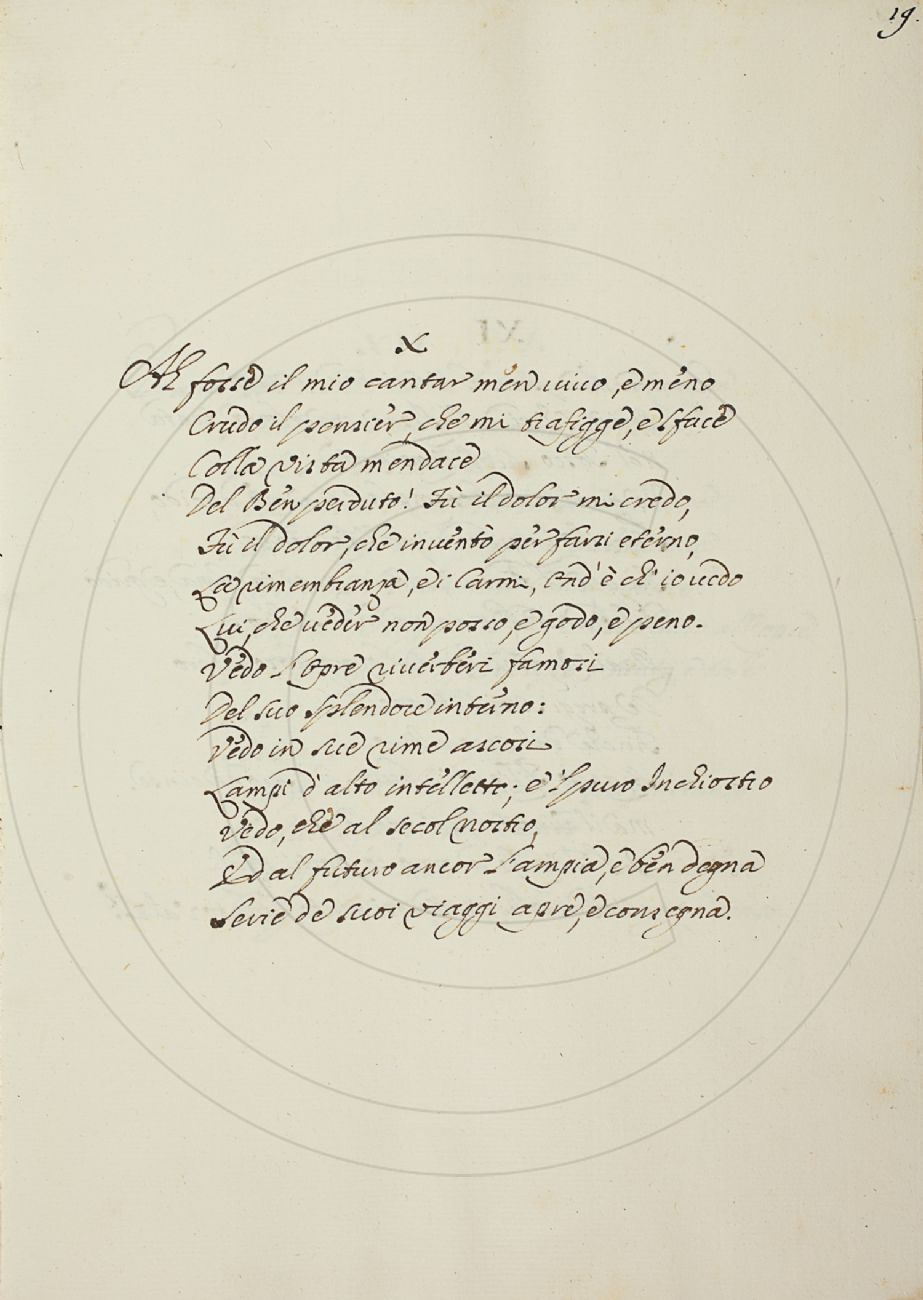 19.
X
Ah fosse il mio cantar men vivo, e meno
Crudo il pensier, che mi trafigge, e sface
Colla vista mendace
Del Ben perduto! Fù il dolor mi credo,
Fù il dolor, che inventò per farsi eterno,
La rimembranza, e i Carmi, Ond'è ch'io vedo
Lui, che veder non posso, e godo, e peno.
Vedo l'Opre
Del suo splendore interno:
Vedo in sue rime ascosi
Lampi d'alto intelletto; e 'l puro Inchiostro
Vedo, che al secol nostro,
Ed al futuro ancor l'ampia, e ben degna
Serie de suoi viaggi apre, e consegna.